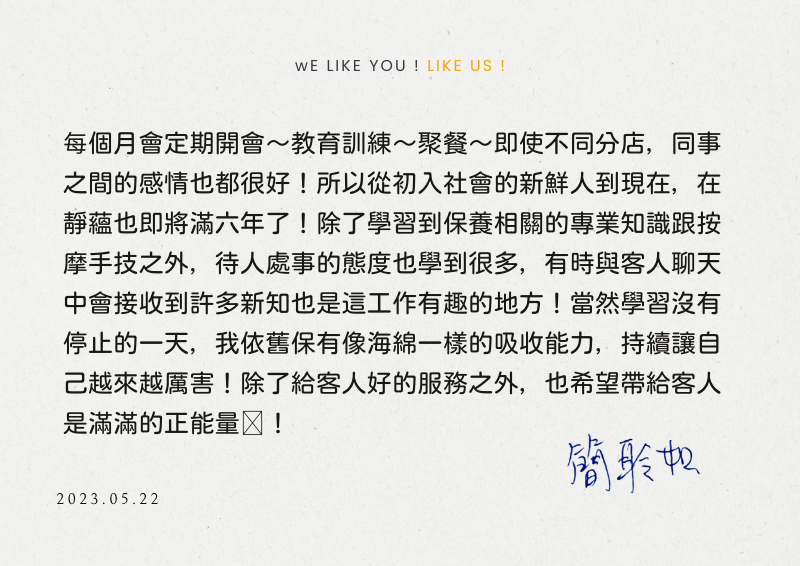 wE LIKE YOU ! LIKE US !
每個月會定期開會～教育訓練～聚餐～即使不同分店，同事
之間的感情也都很好！所以從初入社會的新鮮人到現在，在
靜蘊也即將滿六年了！除了學習到保養相關的專業知識跟按
摩手技之外，待人處事的態度也學到很多，有時與客人聊天
中會接收到許多新知也是這工作有趣的地方！當然學習沒有
停止的一天，我依舊保有像海綿一樣的吸收能力，持續讓自
己越來越厲害！除了給客人好的服務之外，也希望帶給客人
是滿滿的正能量！
簡聆如
2023.05.22